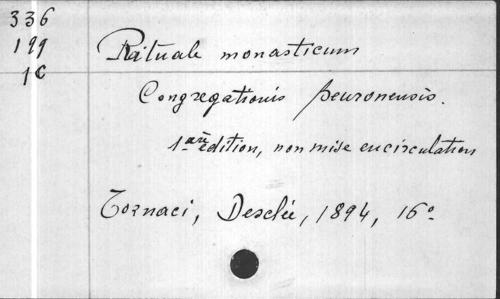 336
199
1C
Rituale monasticum
Congregationis beuronensis.
1.ère édition, non mise en circulation
Tornaci, Desclée, 1894, 16°